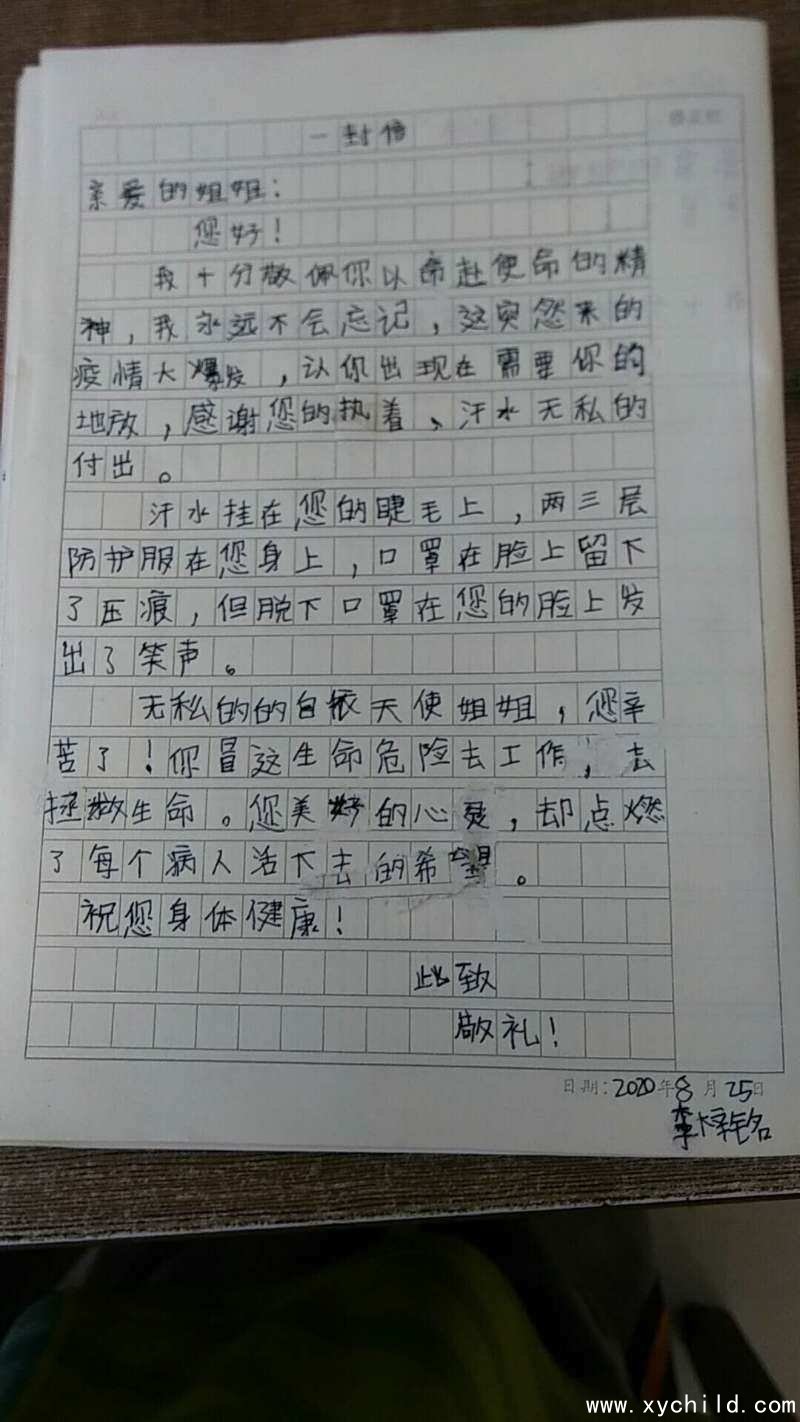 一封信
亲爱的姐姐：
您好！
我十分敬佩你以命赴使命的精
神，我永远不会忘记，这突然来的
疫情大爆发，认你出现在需要你的
地放，感谢您的执着、汗水无私的
付出。
汗水挂在您的睫毛上，两三层
防护服在您身上，口罩在脸上留下
了压痕，但脱下口罩在您的脸上发
出了笑声。
无私的的白衣天使姐姐，您辛
苦了！你冒这生命危险去工作，去
拯救生命。您美好的心灵，却点燃
了每个病人活下去的希望。
祝您身体健康！
此致
敬礼！
日期：2020年8月25日
李梓铭
www.xychild.com